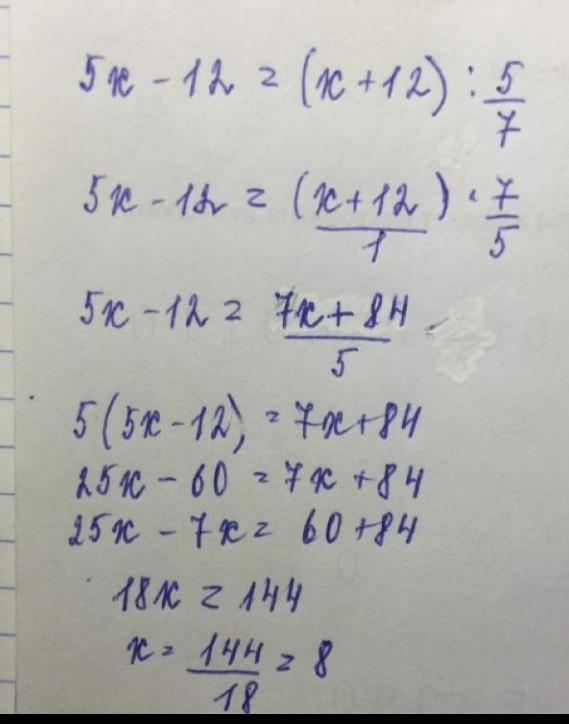 5x - 12 = (x + 12) : 5/7
5x - 12 = (x + 12)/1 · 7/5
5x - 12 = (7x + 84)/5
5(5x - 12) = 7x + 84
25x - 60 = 7x + 84
25x - 7x = 60 + 84
18x = 144
x = 144/18 = 8